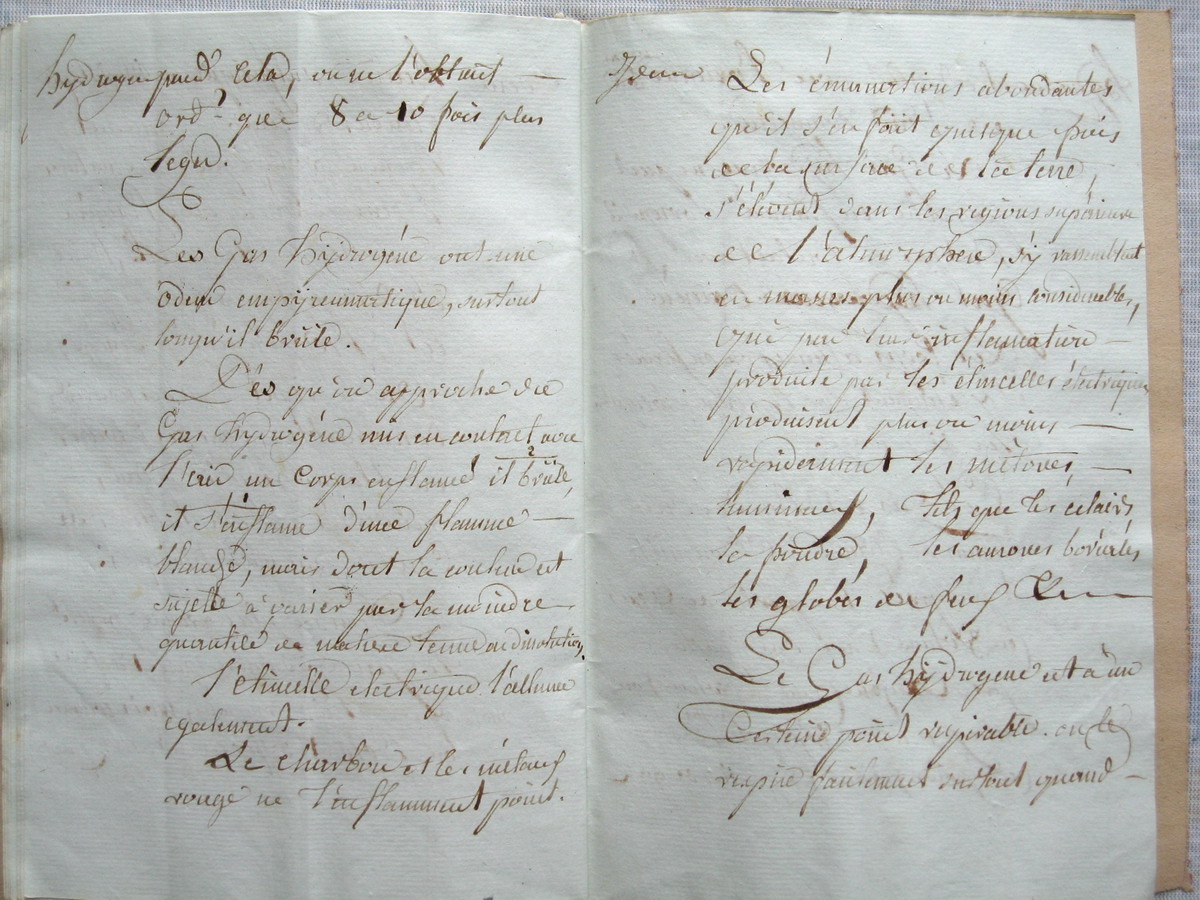 hydrogene pend.t cela, on ne l'obtient —
ord.t que 8 a 10 fois plus
leger.
Les Gas hydrogéne ont une
odeur empyreumatique, surtout
lorsqu'il brûle.
Dés qu'on approche du
Gas hydrogéné mis en contact avec
l'air un corps enflamé il brûle,
it s'enflame d'une flamme —
blanche, mais dont la couleur est
sujette a varier par la moindre
quantité de matiere tenue en dissolution.
l'etincelle electrique l'allume
egalement.
Le charbon et les métaux
rouge ne l'enflamment point.
Idem Les émanations abondantes
qu'il s'en fait quelque fois
de la surface de la terre,
s'élévent dans les régions supérieure
de l'atmosphere, s'y rassemblent
en masses plus ou moins considerables,
que par leur inflamation —
produite par les étincelles électriques
produisent plus ou moins —
rapidement les météores, —
lumineux, tels que les eclairs
la foudre, les aurores boréales
les globes de feu &c —
Le Gas hydrogene est à un
certaine point respirable. on le
respire facilement surtout quand —